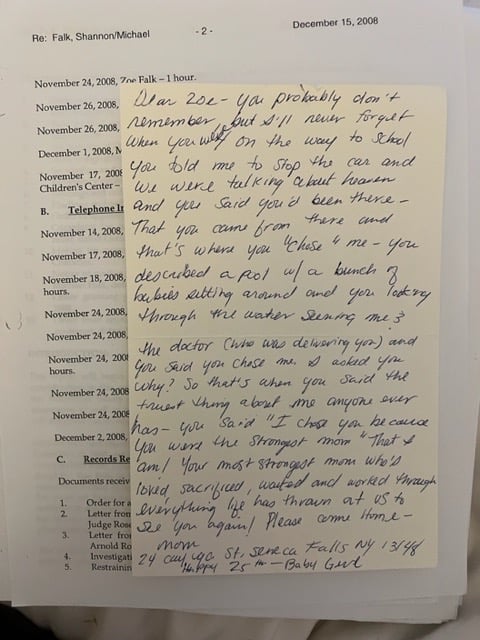 Re: Falk, Shannon/Michael
- 2 -
December 15, 2008
November 24, 2008, Zoe Falk – 1 hour.
November 26, 2008,
November 26, 2008,
December 1, 2008, M
November 17, 2008
Children's Center –
B. Telephone In
November 14, 2008,
November 17, 2008,
November 18, 2008,
hours.
November 24, 2008,
November 24, 2008,
November 24, 2008
hours.
November 24, 2008
November 24, 2008
December 2, 2008,
C. Records Re
Documents receiv
1. Order for a
2. Letter from
Judge Ros
3. Letter from
Arnold Ro
4. Investigati
5. Restrainin
Dear Zoe – you probably don't
remember, but I'll never forget
when you were on the way to school
you told me to stop the car and
we were talking about heaven
and you said you'd been there –
That you came from there and
that's where you "chose" me – you
described a pool w/ a bunch of
babies sitting around and you looking
through the water seeing me &
the doctor (who was delivering you) and
you said you chose me. I asked you
why? So that's when you said the
truest thing about me anyone ever
has – you said "I chose you because
you were the strongest mom" That I
am! Your most strongest mom who's
loved, sacrificed, waited and worked through
everything life has thrown at us to
see you again! Please come home –
Mom
24 Cayuga St. Seneca Falls NY 13148
Happy 25th – Baby Girl